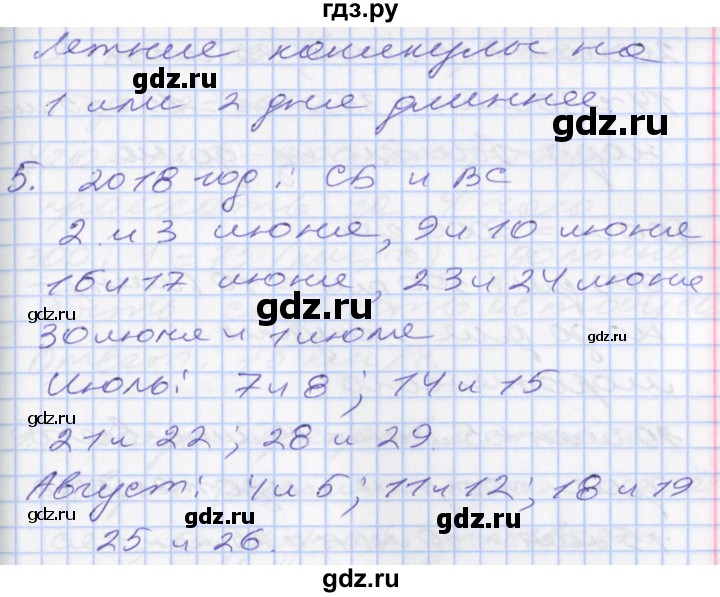 гдз.ру
Летние каникулы на
1 или 2 дня длиннее.
5. 2018 год: СБ и ВС
2 и 3 июня, 9 и 10 июня
16 и 17 июня, 23 и 24 июня
30 июня и 1 июля
Июль: 7 и 8; 14 и 15
21 и 22; 28 и 29.
Август: 4 и 5; 11 и 12; 18 и 19
25 и 26.
gdz.ru
gdz.ru
gdz.ru
gdz.ru
gdz.ru
gdz.ru
gdz.ru
gdz.ru
gdz.ru
gdz.ru
gdz.ru